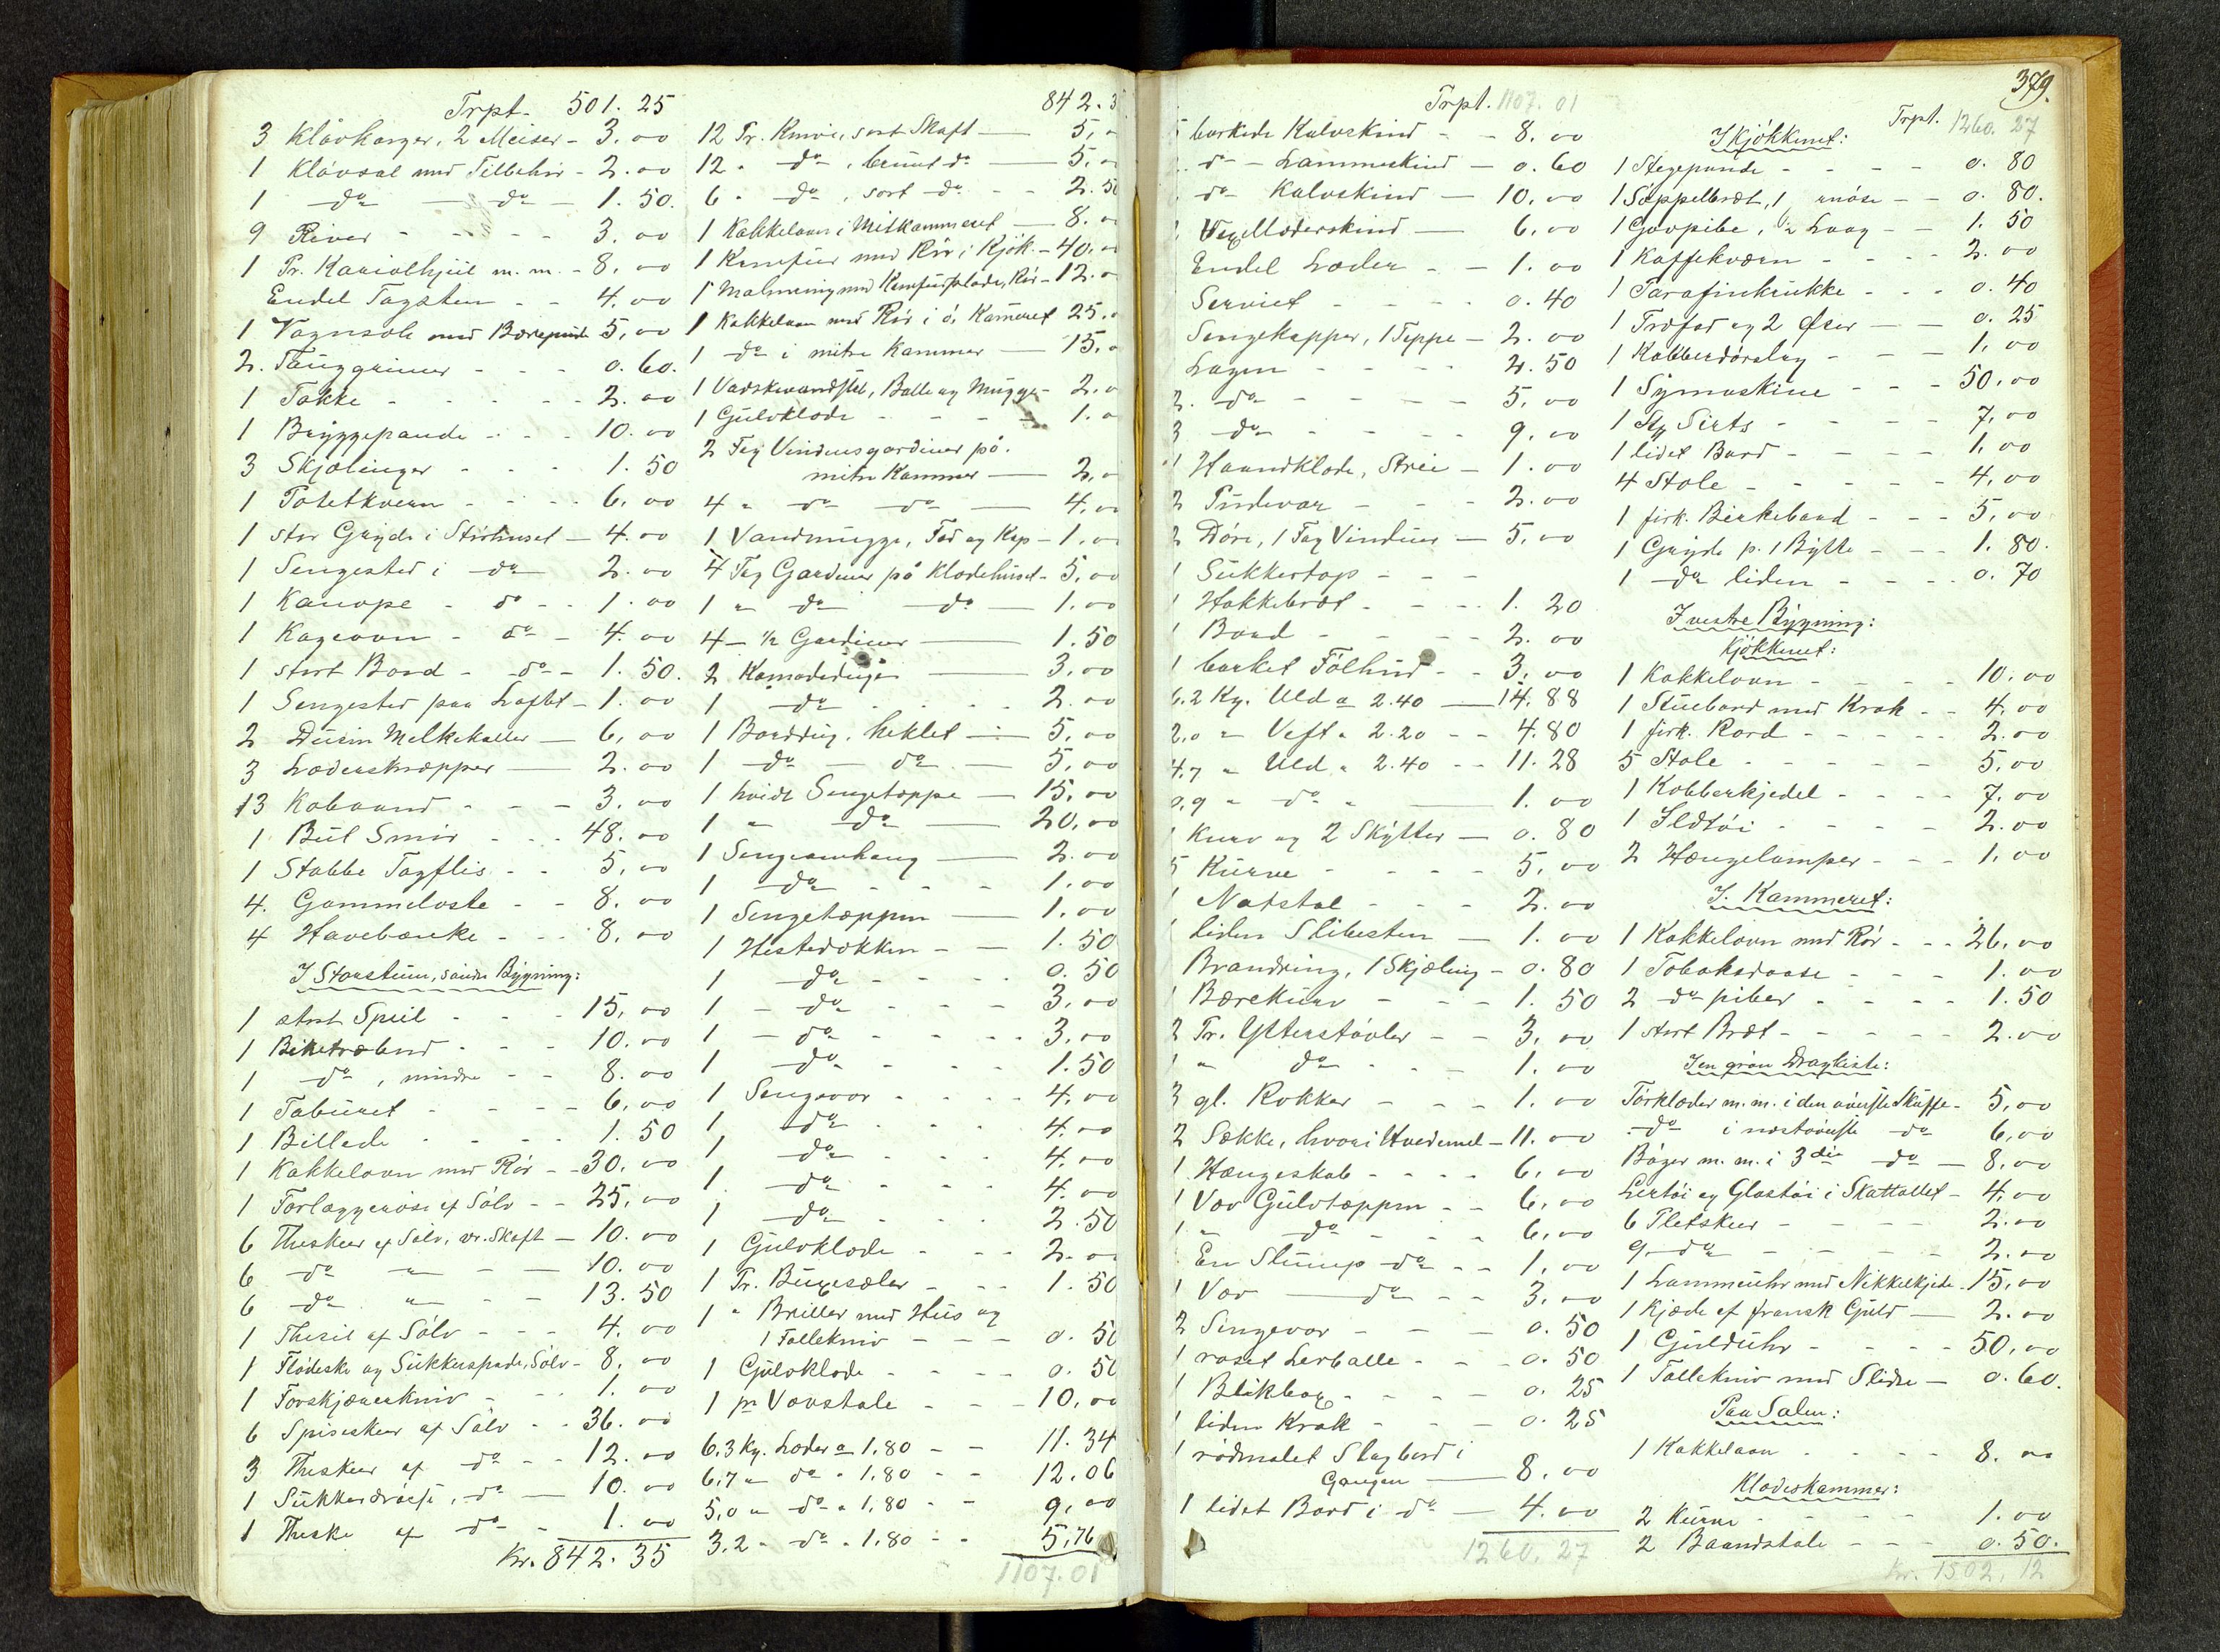 Trpt. 501. 25
3 Kløvkorger, 2 Meiser - 3. 00
1 Kløvsal med Tilbehør - 2. 00
1 do - do - 1. 50.
9 River - - - - - 3. 00
1 Pr. Kariolhjul m. m. - 8. 00
Endel Tagsten - - 4. 00
1 Vognsole med Børepude 5. 00
2. Tauggrimer - - - 0. 60.
1 Takke - - - - - 2. 00
1 Bryggepande - - - 10. 00
3 Skjølinger - - - 1. 50
1 Potetkvern - - - - 6. 00
1 stor Gryde i Størhuset - 4. 00
1 Sengested i do 2. 00
1 Kanope - do - - 1. 00
1 Kageovn - do - 4. 00
1 stort Bord - do - 1. 50.
1 Sengested paa Loftet - 1. 00
2 Dusin Melkekoller - 6. 00
3 Læderskræpper - 2. 00
13 Kobaand - - - 3. 00
1 But Smør - - - 48. 00
1 Stabbe Tagflis - - 5. 00
4. Gammeloste - - 8. 00
4 Havebænke - - - 8. 00
I Storstuen, søndre Bygning:
1 stort Speil - - - 15. 00
1 Birketræbord - - - 10. 00
1 do, mindre - - 8. 00
1 Taburet - - - - 6. 00
1 Billede - - - - 1. 50
1 Kakkelovn med Rør - - 30. 00
1 Forlæggerøse af Sølv - - 25. 00
6 Theskeer af Sølv, vr. Skaft - 10. 00
6 do " - - 10. 00
6 do " - - 13. 50
1 Thesil af Sølv - - - 4. 00
1 Flødeske og Sukkerspade, Sølv - 8. 00
1 Forskjærerkniv - - - 1. 00
6 Spiseskeer af Sølv - - 36. 00
3 Theskeer af do - - 12. 00
1 Sukkerdraase, do - 10. 00
1 Theske af do - 1. 00
Kr. 842. 35
842. 3
12 Pr. Knive, sort Skaft - 5.
12 " do, brunt do - 5.
6 " do, sort do - - 2. 50
1 Kakkelovn i Mitkammeret - 8.
1 Komfur med Rør i Kjøk. - 40.
1 Malmring med Komfurplade, Rør - 12.
1 Kakkelovn med Rør i ø. Kameret 25.
1 do i mitre Kammer - 15.
1 Vadskevandstel, Balle og Mugge - 2.
1 Gulvklæde - - - - 1.
2 Fag Vinduesgardiner på
mitre Kammer - 2.
4 " do do - 4.
1 Vandmugge, Fad og Kop - 1.
4 Fag Gardiner på Klædehuset - 5. 00
1 " do do - 1. 00
4 - 1/2 Gardiner - 1. 50
2 Komodeduge - 3. 00
1 do - - - - 2. 00
1 Borddug, heklet - 5. 00
1 do - do - 5. 00
1 hvidt Sengetæppe - 15. 00
1 " do - 20. 00
1 Sengeomhæng - 2. 00
1 do - - - 1. 00
1 Sengetæppen - 1. 00
1 Hestedækken - - 1. 50
1 do - - - - 0. 50
1 - do - - - 3. 00
1 - do - - - - 3. 00
1 do - - - - 1. 50
1 Sengevær - - - - 4. 00
1 do - - - - 4. 00
1 do - - - - 4. 00
1 do - - - - 4. 00
1 do - - - 2. 50
1 Gulvklæde - - - 2. 00
1 Pr. Buxesæler - - - 1. 50
1 " Briller med Hus og
1 Follekniv - - - 0. 50
1 Gulvklæde - - - - 0. 50
1 pr Vævstole - - - 10. 00
6.3 Kg. Læder a 1.80 - - 11. 34
6.7 " do " 1.80 - - 12. 06
5.0 " do " 1.80 - - 9. 00
3.2 " do " 1.80 - - 5.76
1107. 01
379.
Trpt. 1107. 01
5 barkede Kalvskind - - 8. 00
do - Lammeskind - 0. 60
do Kalvskind - 10. 00
1 Vox Moderskind - 6. 00
Endel Læder - - 1. 00
Serviet - - - - 0. 40
Sengekapper, 1 Teppe - 2. 00
Lagen - - - - 2. 50
2. do - - - - 5. 00
3 do - - - - 9. 00
1 Haandklæde, Strie - 1. 00
2 Pudevar - - - 2. 00
2 Døre, 1 Fag Vinduer - 5. 00
1 Sukkertop - - -
1 Hakkebræt - - - - 1. 20
1 Bord - - - - 2. 00
1 barket Følhud - - 3. 00
6.2 Kg. Uld a 2.40 - 14. 88
2.0 " Veft " 2.20 - - 4.80
4.7 " Uld " 2.40 - - 11. 28
0.9 " do " - 1. 00
1 Kurv og 2 Skytter - 0. 80
5 Kurve - - - - 5. 00
1 Natstol - - - 2. 00
1 liden Slibesten - 1. 00
Brandring, 1 Skjæling - 0. 80
1 Bærekurv - - - 1. 50
2 Pr. Ytterstøvler - - 3. 00
1 " do - - - 1. 00
3 gl. Rokker - - - 1. 00
2 Sække, hvori Hvedemel - 11. 00
1 Hængeskab - - - - 6. 00
1 Vov Gulvtæppen - - 6. 00
1 " do - - - 6. 00
En Stump do - - 1. 00
1 Vov - do - - 3. 00
2 Sengevær - - - 0. 50
1 roset Lerballe - - - 0. 50
1 Blikbox - - - - 0. 25
1 liden Krak - - - 0. 25
1 rødmalet Slagbord i
Gangen - 8. 00
1 lidet Bord i do - 4. 00
1260. 27
Trpt. 1260. 27
I Kjøkkenet:
1 Stegepande - - - - 0. 80
1 Søppelbræt, 1 - - 0. 80.
1 Govpibe, 1/2 Laag - - 1. 50
1 Kaffekværn - - - - 2. 00
1 Parafinkrukke - - - 0. 40
1 Træfad og 2 Øser - - 0. 25
1 Kobberdørslag - - - 1. 00
1 Symaskine - - - 50. 00
1 Stp Sirts - - - - 7. 00
1 lidet Bord - - - - 1. 00
4 Stole - - - - - 4. 00
1 firk. Birkebord - - - 5. 00
1 Gryde p. 1 Bytte - - 1. 80.
1 do liden - - - - 0. 70
I vestre Bygning:
Kjøkkenet:
1 Kakkelovn - - - - 10. 00
1 Stuebord med Krak - - 4. 00
1 firk. Bord - - - - - 2. 00
5 Stole - - - - - 5. 00
1 Kobberkjedel - - - - 7. 00
1 Ildtøi - - - - 2. 00
2 Hængelamper - - - 1. 00
I Kammeret:
1 Kakkelovn med Rør - - - 26. 00
1 Tobaksdaase - - - 1. 00
2 do piber - - - - 1. 50
1 stort Bræt - - - - - 2. 00
I en grøn Dragkiste:
Tørklæder m. m. i den øverste Skuffe - 5. 00
do i næstøverste do 6. 00
Bøger m. m. i 3die do - 8. 00
Lertøi og Glastøi i Skattollet - 4. 00
6 Pletskeer - - - - 2. 00
9 do - - - - - 2. 00
1 Lommeuhr med Nikkelkjede - 15. 00
1 Kjæde af fransk Guld - 2. 00
1 Gulduhr - - - - 50. 00
1 Follekniv med Slidre - 0. 60.
Paa Salen:
1 Kakkelovn - - - - 8. 00
Klædeskammer:
2 Kurve - - - - 1. 00
2 Baandstole - - - 0. 50.
Kr. 1502. 12